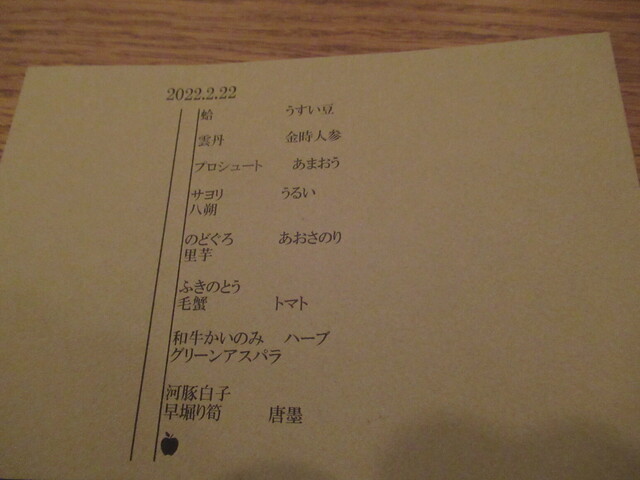 2022.2.22
蛤 うすい豆
雲丹 金時人参
プロシュート あまおう
サヨリ うるい
八朔
のどぐろ あおさのり
里芋
ふきのとう
毛蟹 トマト
和牛かいのみ ハーブ
グリーンアスパラ
河豚白子
早堀り筍 唐墨